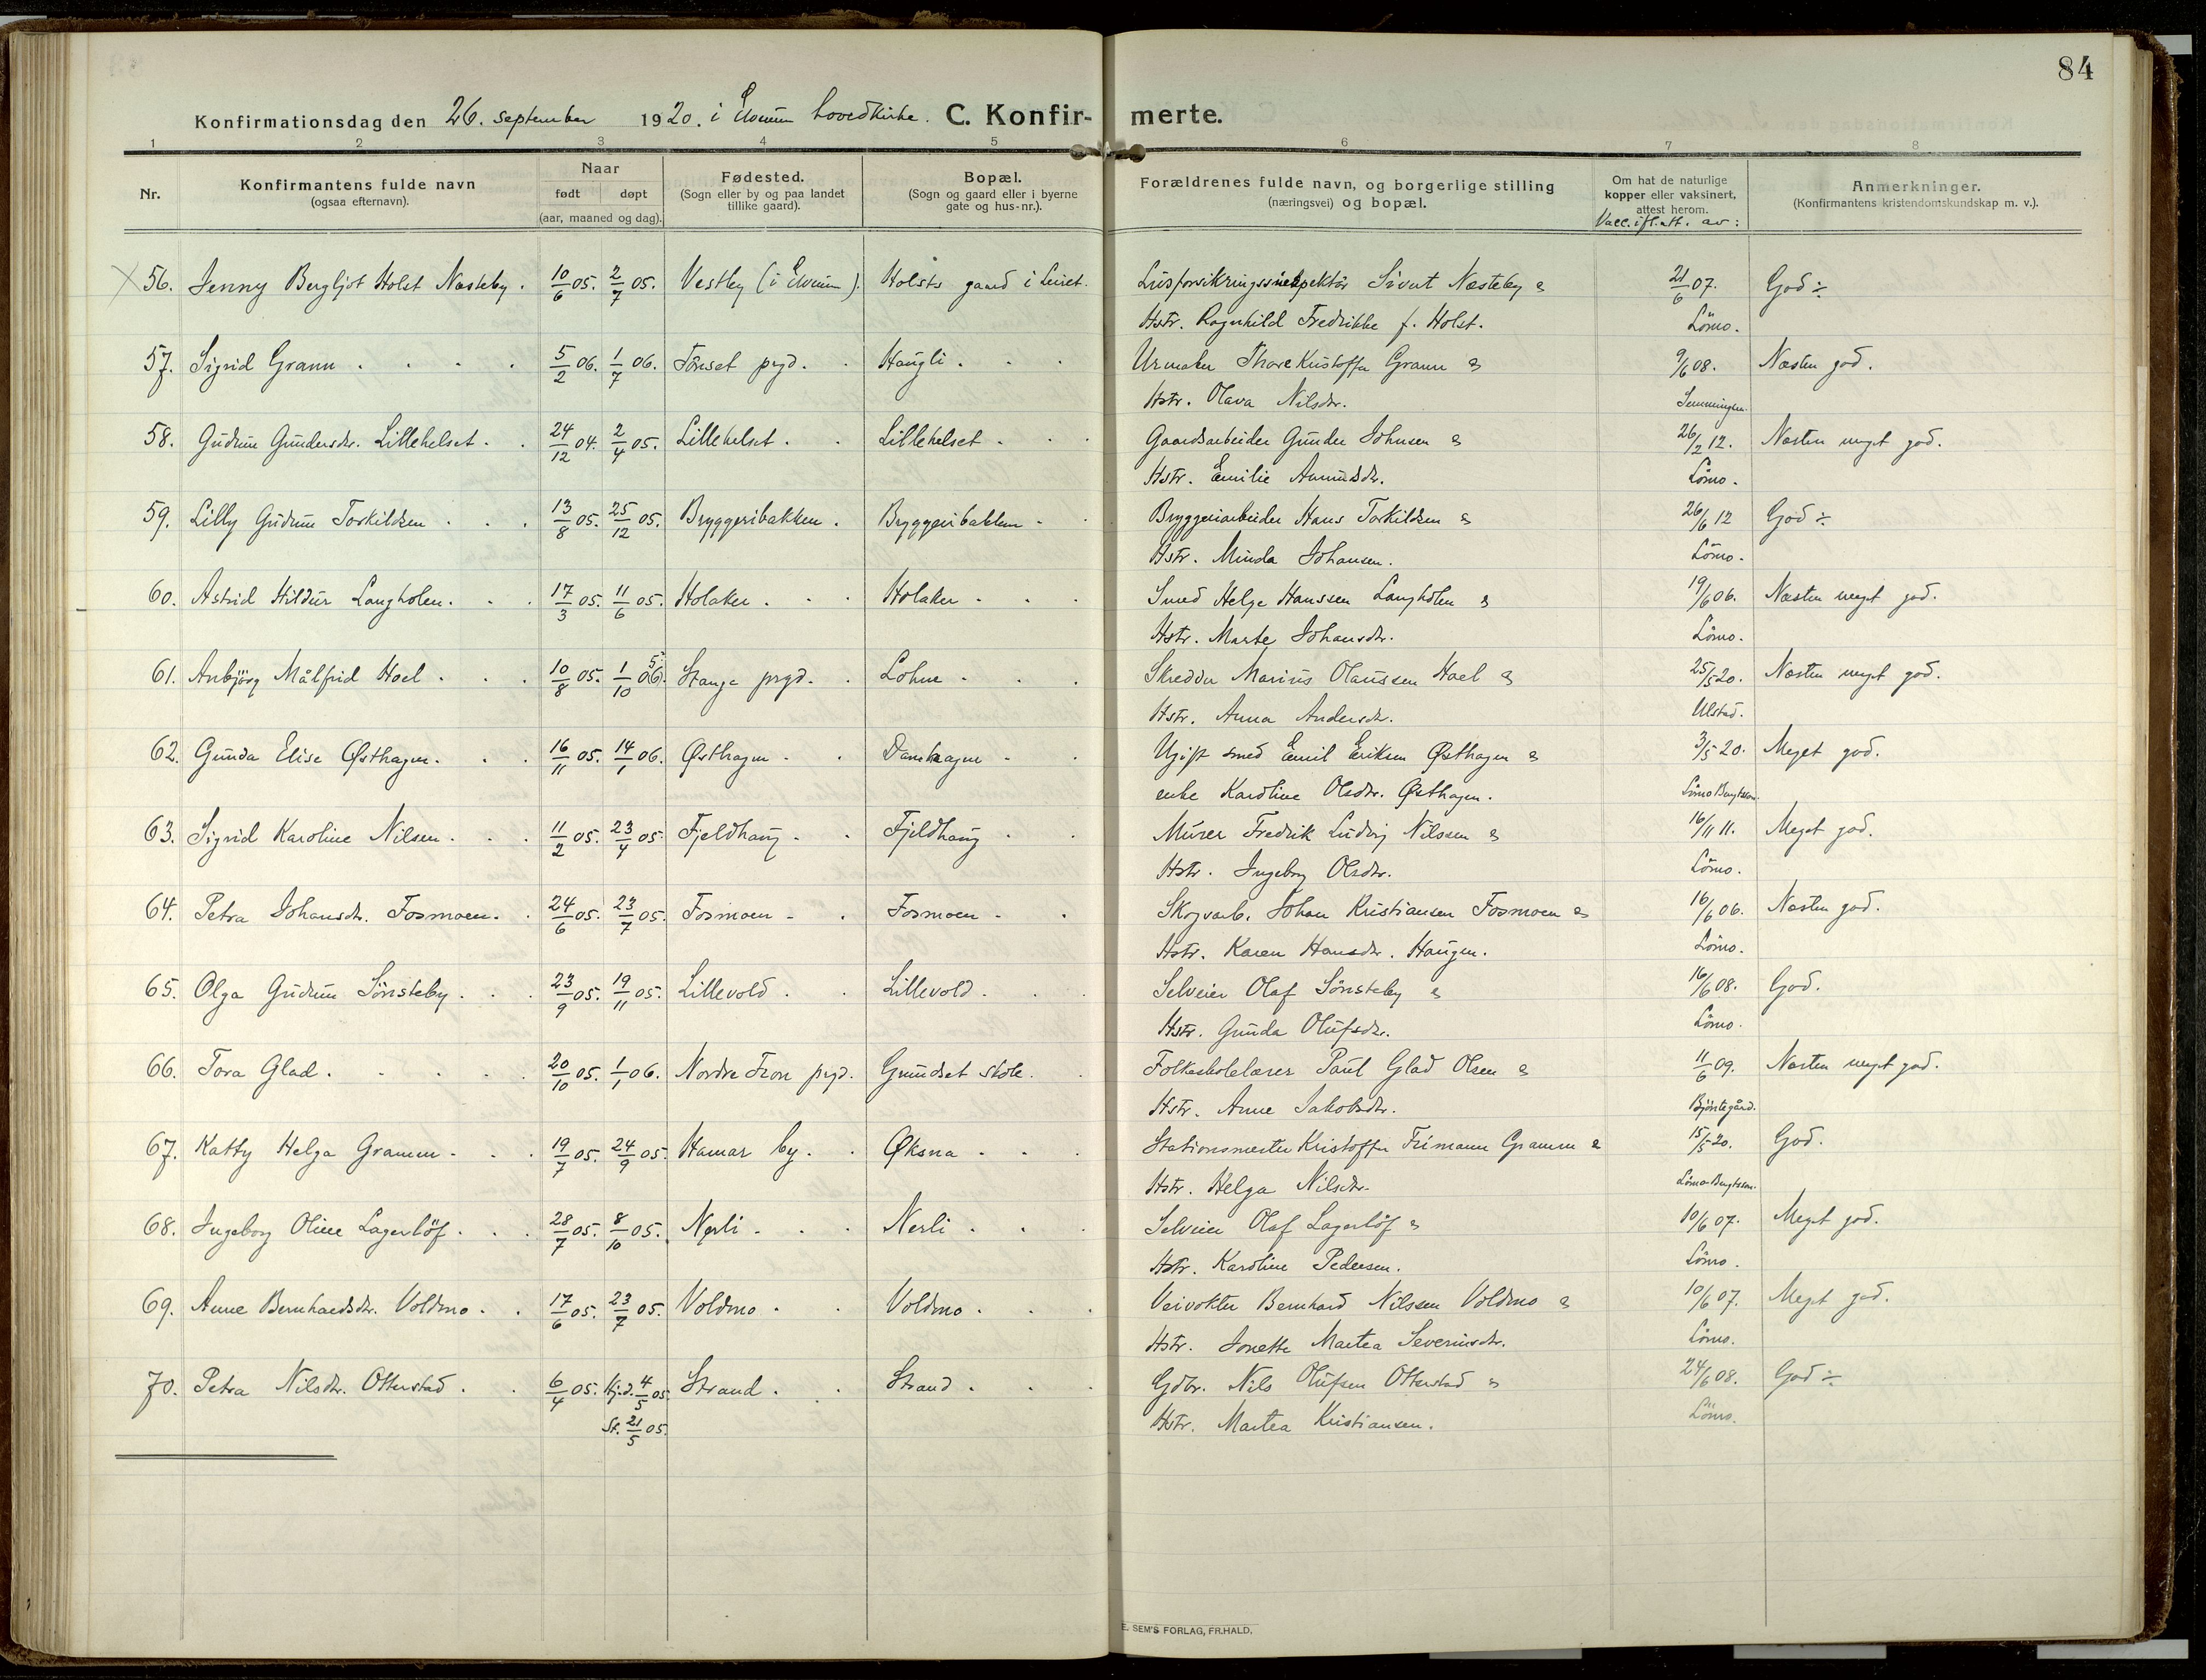 84
Konfirmationsdag den 26. september 1920. i Elverum hovedkirke. C. Konfir- merte.
1 2 3 4 5 6 7 8
Nr. Konfirmantens fulde navn (ogsaa efternavn). Naar født døpt (aar, maaned og dag). Fødested. (Sogn eller by og paa landet tillike gaard). Bopæl. (Sogn og gaard eller i byerne gate og hus-nr.). Forældrenes fulde navn, og borgerlige stilling (næringsvei) og bopæl. Om hat de naturlige kopper eller vaksinert, attest herom. Vacc. ifl. att. av: Anmerkninger. (Konfirmantens kristendomskundskap m. v.).
56. Jenny Bergljot Holst Næsteby. 10/6 05. 2/7 05. Vestby (i Elverum). Holsts gaard i Leiret. Livsforsikringsinspektør Sivert Næsteby & 21/6 07. God ÷
Hstr. Ragnhild Fredrikke f. Holst. Lömo.
57. Sigrid Gramm . 5/2 06. 1/7 06. Tönset prgd. Haugli. Urmaker Thore Kristoffer Gramm & 9/6 08. Næsten god.
Hstr. Olava Nilsdr. Semmingsen.
58. Gudrun Gundersdr. Lillehelset. 24/12 04. 2/4 05. Lillehelset. Lillehelset. Gaardsarbeider Gunder Johnsen & 26/2 12. Næsten meget god.
Hstr. Emilie Amundsdr. Lömo.
59. Lilly Gudrun Torkildsen. 13/8 05. 25/12 05. Bryggeribakken. Bryggeribakken. Bryggeriarbeider Hans Torkildsen & 26/6 12 God ÷
Hstr. Minda Johansen. Lömo.
60. Astrid Hildur Langholen. 17/3 05. 11/6 05. Holaker. Holaker. Smed Helge Hanssen Langholen & 19/6 06. Næsten meget god.
Hstr. Marte Johansdr. Lömo.
61. Anbjörg Målfrid Hoel. 10/8 05. 1/10 06 5. Stange prgd. Lohne. Skredder Marius Olaussen Hoel & 25/5 20. Næsten meget god.
Hstr. Anna Andersdr. Ulstad.
62. Gunda Elise Østhagen. 16/11 05. 14/1 06. Østhagen. Damhagen. Ugift smed Emil Eriksen Østhagen & 3/5 20. Meget god.
enke Karoline Olsdr. Østhagen. Lömo Bengtsson.
63. Sigrid Karoline Nilsen. 11/2 05. 23/4 05. Fjeldhaug. Fjeldhaug Murer Fredrik Ludvig Nilssen & 16/11 11. Meget god.
Hstr. Ingeborg Olsdr. Lömo.
64. Petra Johansdr. Fosmoen. 24/6 05. 23/7 05. Fosmoen. Fosmoen. Skogvarb. Johan Kristiansen Fosmoen & 16/6 06. Næsten god.
Hstr. Karen Hansdr. Haugen. Lömo.
65. Olga Gudrun Sönsteby. 23/9 05. 19/11 05. Lillevold. Lillevold. Selveier Olaf Sönsteby & 16/6 08. God.
Hstr. Gunda Olufsdr. Lömo.
66. Tora Glad. 20/10 05. 1/1 06. Nordre Fron prgd. Grundset skole. Folkeskolelærer Paul Glad Olsen & 11/6 09. Næsten meget god.
Hstr. Anne Jakobsdr. Bjöntegård.
67. Katty Helga Gramm. 19/7 05. 24/9 05. Hamar by. Øksna. Stationsmester Kristoffer Frimann Gramm & 15/5 20. God.
Hstr. Helga Nilsdr. Lömo-Bengtsson.
68. Ingeborg Oline Lagerlöf. 28/7 05. 8/10 05. Nerli. Nerli. Selveier Olaf Lagerlöf & 10/6 07. Meget god.
Hstr. Karoline Pedersen. Lömo.
69. Anne Bernhardsdr. Voldmo. 17/6 05. 23/7 05. Voldmo. Voldmo. Veivokter Bernhard Nilssen Voldmo & 10/6 07. Meget god.
Hstr. Jonette Martea Severinsdr. Lömo.
70. Petra Nilsdr. Otterstad. 6/4 05. Hj.d. 4/5 05. Strand. Strand. Gdbr. Nils Olufsen Otterstad & 24/6 08. God ÷
St. 21/5 05. Hstr. Martea Kristiansen. Lömo.
E. SEM'S FORLAG, FR.HALD.